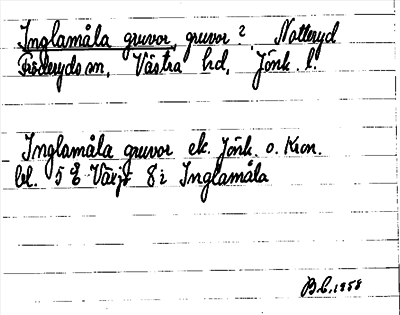 Inglamåla gruvor, gruvor? Notteryd
Fröderyds sn, Västra hd, Jönk. l.
Inglamåla gruvor ek. Jönk. o. Kron.
bl. 5 Ö Växjö 8 i Inglamåla
B.C. 1958